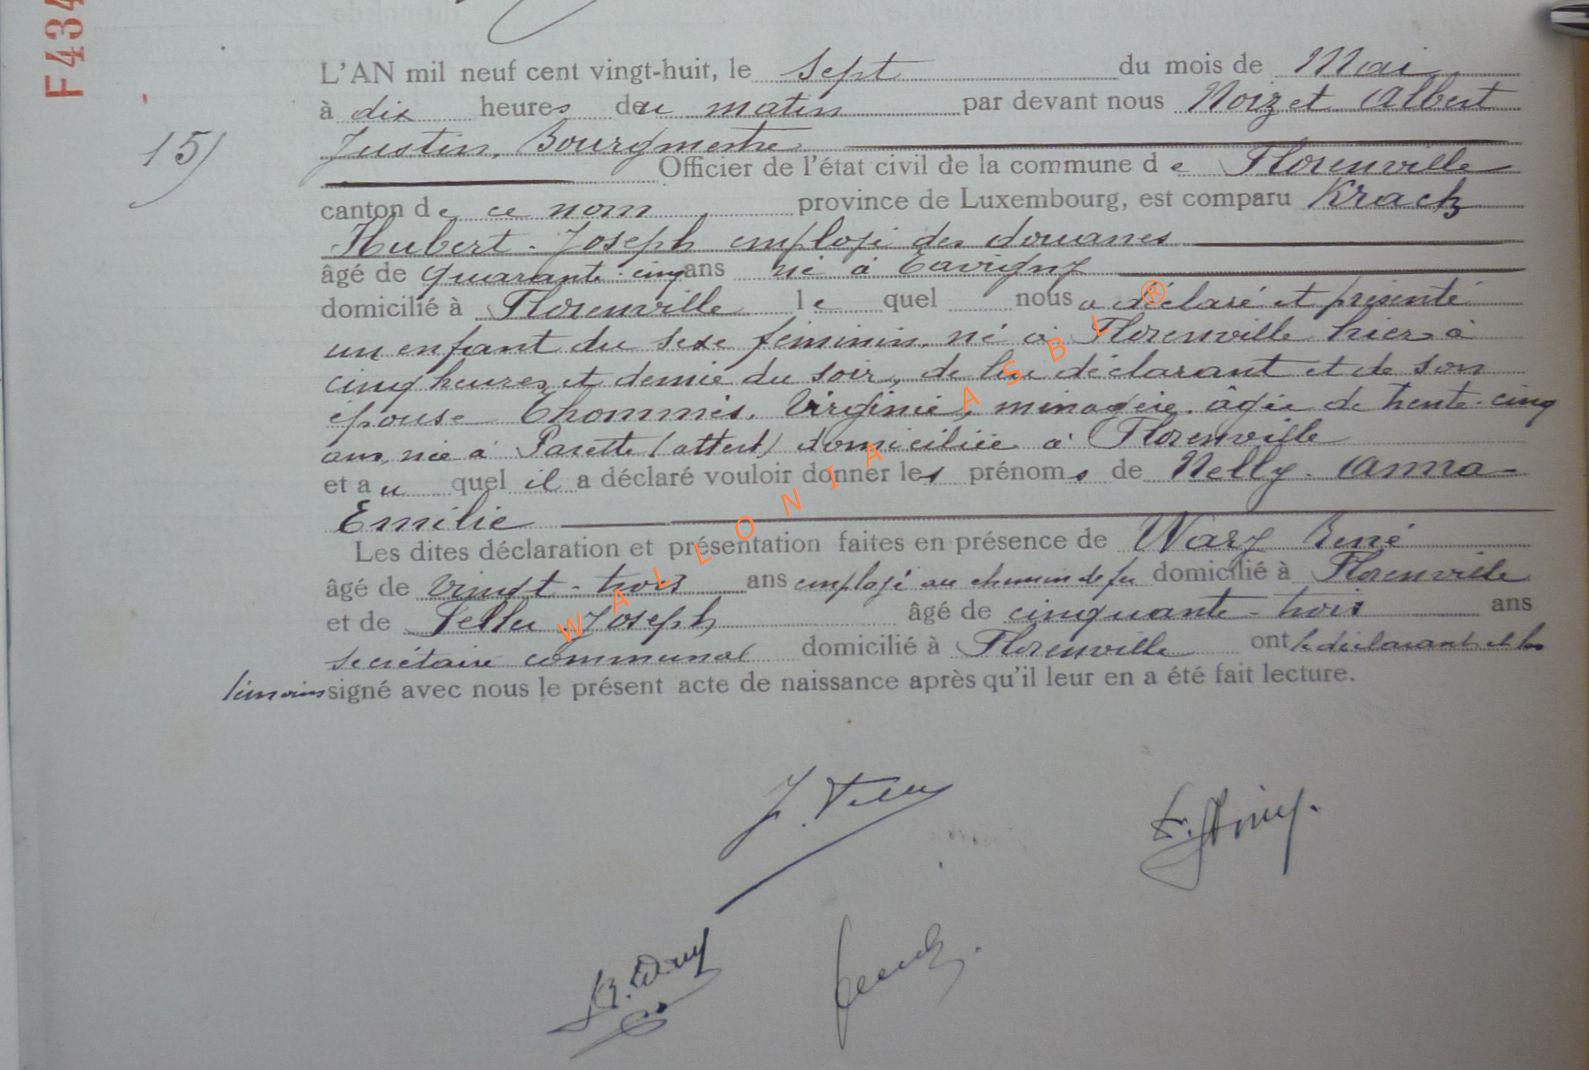 F434
15)
L'AN mil neuf cent vingt-huit, le sept du mois de Mai
à dix heures du matin par devant nous Noizet Albert
Justin, Bourgmestre
Officier de l'état civil de la commune de Florenville
canton de ce nom province de Luxembourg, est comparu Krack
Hubert-Joseph employé des douanes
âgé de quarante-cinq ans né à Tavigny
domicilié à Florenville lequel nous a déclaré et présenté
un enfant du sexe féminin, né à Florenville hier à
cinq heures et demie du soir, de lui déclarant et de son
épouse Thommes, Virginie, ménagère, âgée de trente-cinq
ans, née à Parette (Attert) domiciliée à Florenville
et au quel il a déclaré vouloir donner les prénoms de Nelly-Anna-
Emilie
Les dites déclaration et présentation faites en présence de Wary René
âgé de vingt-trois ans employé au chemin de fer domicilié à Florenville
et de Joseph âgé de cinquante-trois ans
secrétaire communal domicilié à Florenville ont le déclarant et les
témoins signé avec nous le présent acte de naissance après qu'il leur en a été fait lecture.
WALLONIA ASBL ®
R. Wary